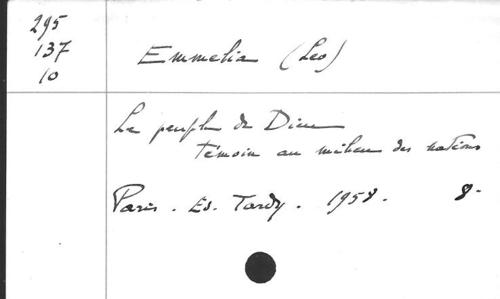 295
137
10
Emmelia (Leo)
Le peuple de Dieu
témoin au milieu des nations
Paris. Ed. Tardy. 1958. 8-